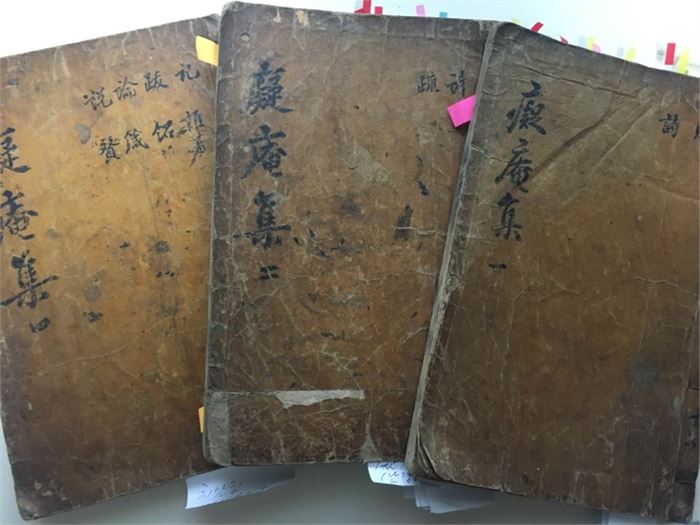 癡庵集 一
詩
癡庵集 二
詩
疏
癡庵集 四
記 雜著
跋 銘
論 箴
說 贊